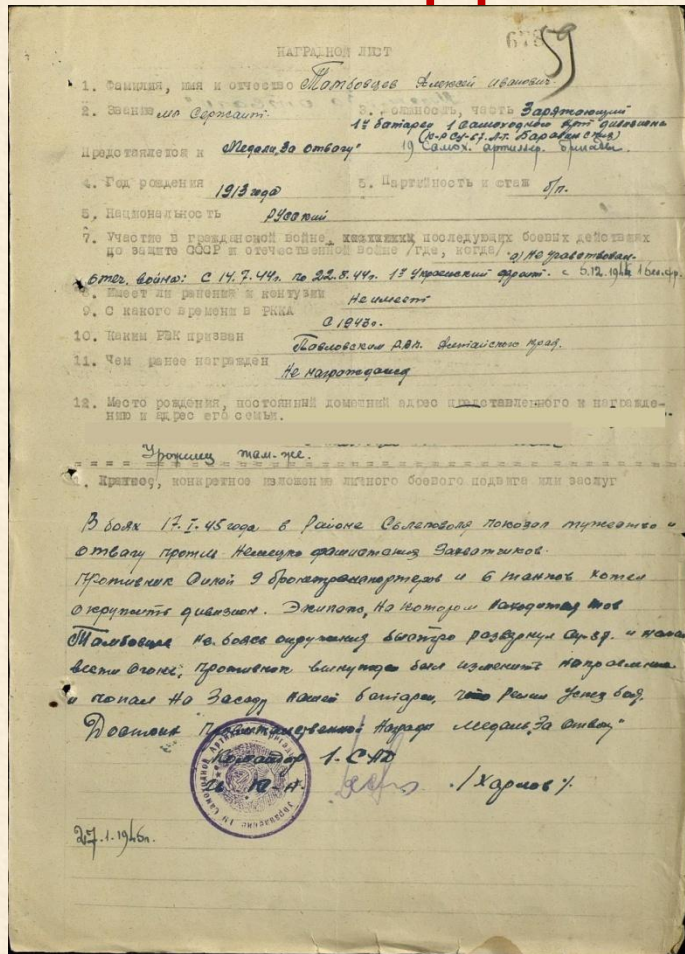 678
59
НАГРАДНОЙ ЛИСТ
1. Фамилия, имя и отчество Тамбовцев Алексей Иванович
2. Звание мл Сержант. 3. Должность, часть Заряжающий
1й батареи 1 Самоходного Арт дивизиона
19 Самох. артиллер. бригады.
Представляется к Медали „За отвагу"
4. Год рождения 1913 года 5. Партийность и стаж б/п.
6. Национальность Русский
7. Участие в гражданской войне, последующих боевых действиях
по защите СССР и отечественной войне /где, когда/ а) Не участвовал.
Отеч. война: С 14.7.44г. по 22.8.44г. 1й Украинский фронт. с 5.12.1944 1 Бел.фр.
8. Имеет ли ранения и контузии Не имеет
9. С какого времени в РККА С 1943г.
10. Каким РВК призван Павловским РВК. Алтайского края.
11. Чем ранее награжден Не награждался
12. Место рождения, постоянный домашний адрес представленного к награжде-
нию и адрес его семьи.
Уроженец там-же.
1. Краткое, конкретное изложение личного боевого подвига или заслуг
В боях 17.I.45 года в Районе показал мужество и
отвагу против Немецко фашистских Захватчиков.
Противник Силой 9 бронетранспортеров и 6 танков хотел
окружить дивизион. Экипаж, На котором находится тов
Тамбовцев Не боясь окружения быстро развернул и начал
вести Огонь, противник вынужден был изменить направление
и попал На Засаду нашей батареи, что решил успех боя.
Достоин Правительственной Награды медаль „За Отвагу"
Командир 1. САД
/Харлов/.
27.1.1945г.